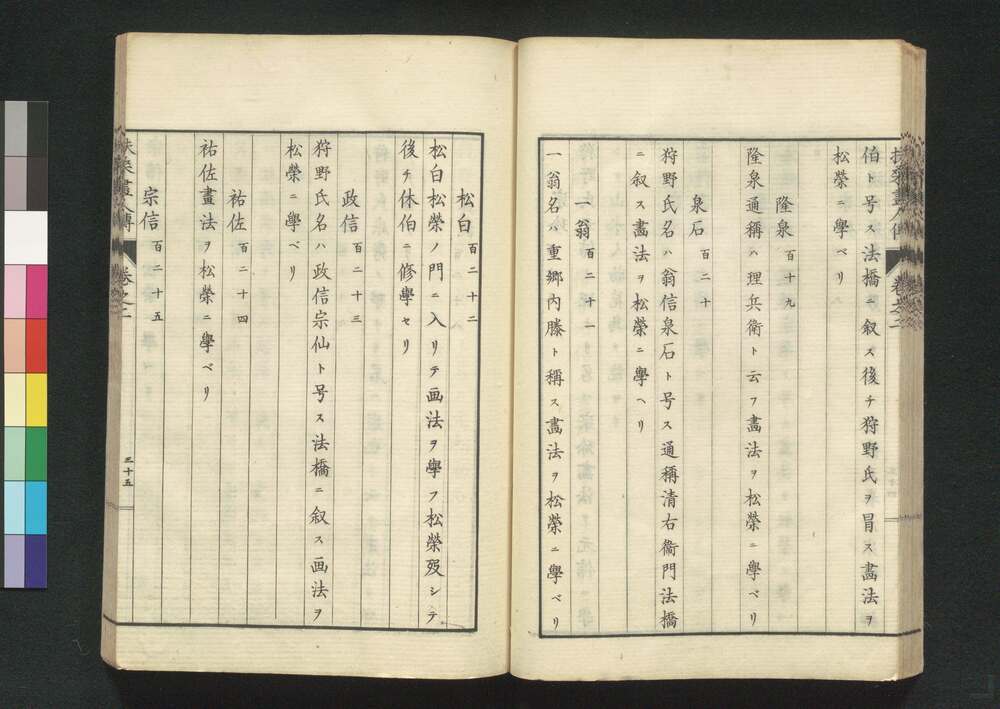 伯ト号ス法橋ニ叙ス後チ狩野氏ヲ冒ス畵法ヲ
松榮ニ學ベリ
隆泉 百十九
隆泉通稱ハ理兵衛ト云フ畵法ヲ松榮ニ學ベリ
泉石 百二十
狩野氏名ハ翁信泉石ト号ス通稱清右衞門法橋
ニ叙ス畵法ヲ松榮ニ學ヘリ
一翁 百二十一
一翁名ハ重郷内膳ト稱ス畵法ヲ松榮ニ學ベリ
松白 百二十二
松白松榮ノ門ニ入リテ画法ヲ學フ松榮歿シテ
後チ休伯ニ修學セリ
政信 百二十三
狩野氏名ハ政信宗仙ト号ス法橋ニ叙ス画法ヲ
松榮ニ學ベリ
祐佐 百二十四
祐佐畫法ヲ松榮ニ學ベリ
宗信 百二十五
扶桑畫人傳 卷之二 三十五